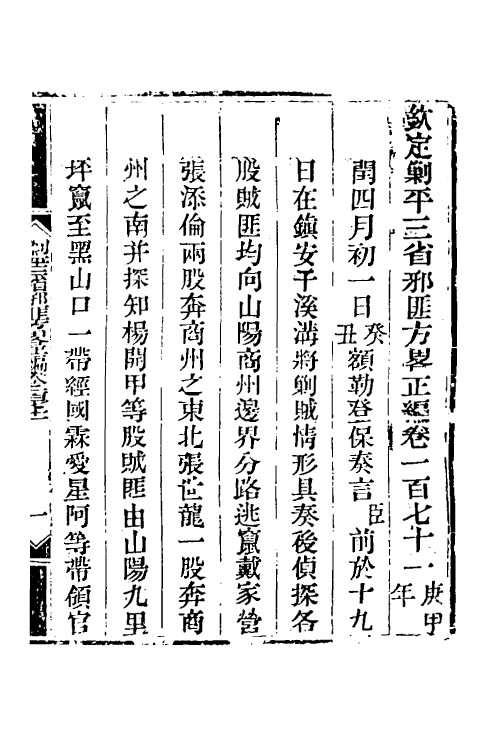 欽定剿平三省邪匪方畧正編卷一百七十一庚申年
閏四月初一日癸丑額勒登保奏言臣前於十九
日在鎮安千溪溝將剿賊情形具奏後偵探各
股賊匪均向山陽商州邊界分路逃竄戴家營
張添倫兩股奔商州之東北張世龍一股奔商
州之南并探知楊開甲等股賊匪由山陽九里
坪竄至黑山口一帶經國霖愛星阿等帶領官
一